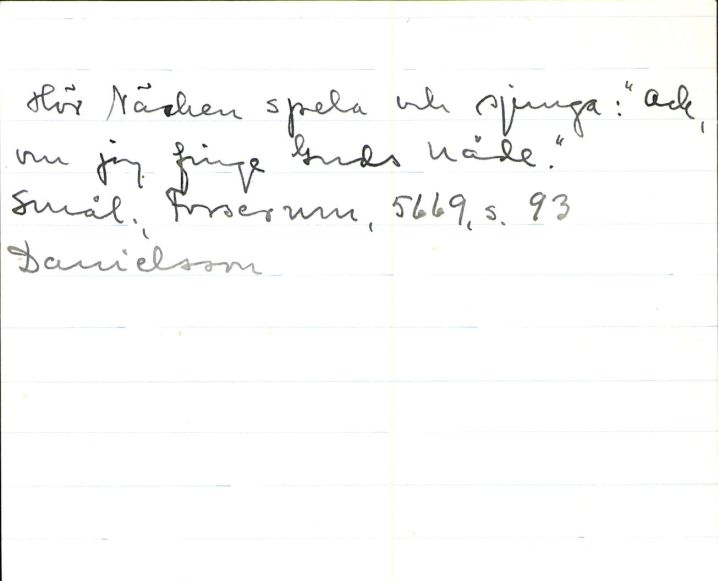 Hör Näcken spela och sjunga: "Ack,
om jag finge Guds nåde."
Smål., Forserum, 5669, s. 93
Danielsson